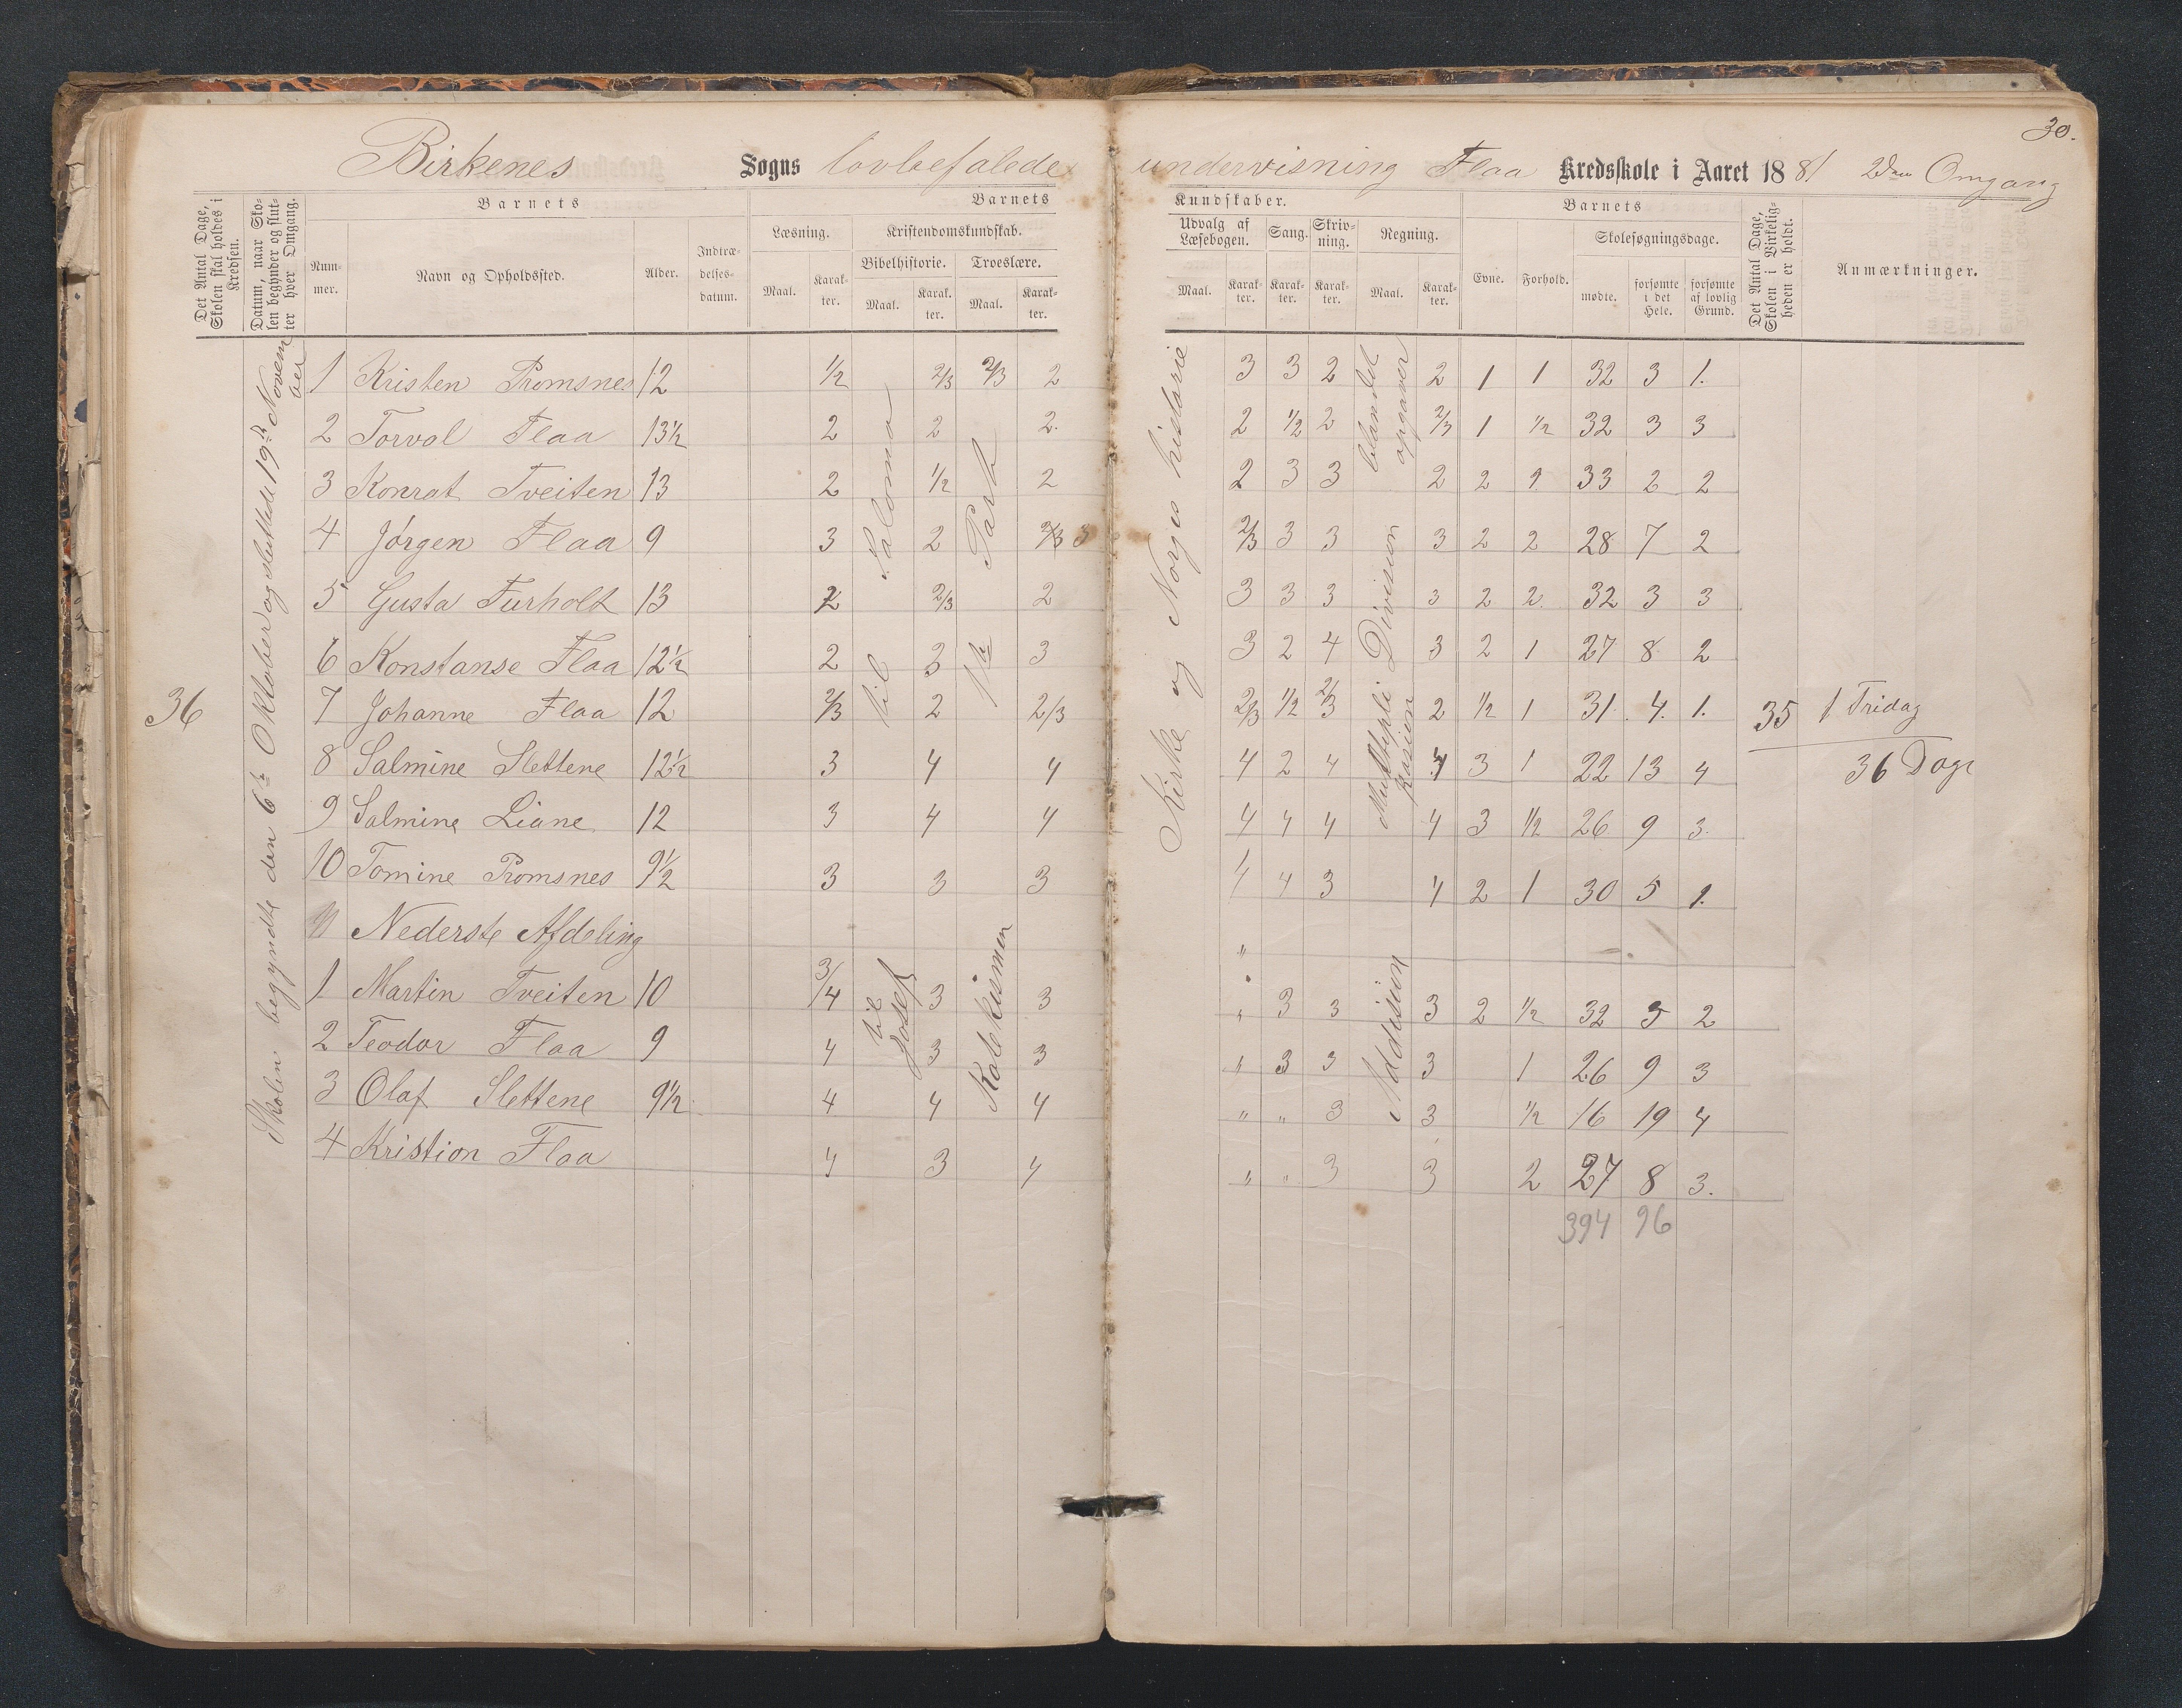 30.
Birkenes Sogns lovbefalede undervisning Flaa Kredsskole i Aaret 1881 2den Omgang
Det Antal Dage, Skolen skal holdes i Kredsen.
Datum, naar Skolen begynder og slutter hver Omgang.
Barnets
Nummer.
Navn og Opholdssted.
Alder.
Indtrædelsesdatum.
Barnets Kundskaber.
Læsning.
Maal. Karakter.
Kristendomskundskab.
Bibelhistorie. Troeslære.
Maal. Karakter. Maal. Karakter.
Udvalg af Læsebogen. Sang. Skrivning. Regning.
Maal. Karakter. Karakter. Karakter. Maal. Karakter.
Barnets
Evne. Forhold. Skolesøgningsdage.
mødte. forsømte i det Hele. forsømte af lovlig Grund.
Det Antal Dage, Skolen i Virkeligheden er holdt.
Anmærkninger.
36
Skolen begyndte den 6te Oktober og sluttede 19de November
til Salomo
1te Part
Kirke og Norges historie
blandet opgaver
Division
Multiplikasion
1 Kristen Promsnes 12 1/2 2/3 2/3 2 3 3 2 2 1 1 32 3 1.
2 Torval Flaa 13½ 2 2 2. 2 1/2 2 2/3 1 1/2 32 3 3
3 Konrat Tveiten 13 2 1/2 2 2 3 3 2 2 1 33 2 2
4 Jørgen Flaa 9 3 2 2/3 3 2/3 3 3 3 2 2 28 7 2
5 Gusta Furholt 13 2 2/3 2 3 3 3 3 2 2. 32 3 3
6 Konstanse Flaa 12½ 2 3 3 3 2 4 3 2 1 27 8 2
7 Johanne Flaa 12 2/3 2 2/3 2/3 1/2 2/3 2 1/2 1 31. 4. 1. 35 1 Fridag
8 Salmine Slettene 12½ 3 4 4 4 2 4 4 3 1 22 13 4 36 Dage
9 Salmine Liane 12 3 4 4 4 4 4 4 3 1/2 26 9 3.
10 Tomine Promsnes 9½ 3 3 3 4 4 3 4 2 1 30 5 1.
11 Nederste Afdeling "
til Josef
Katekismen
Addision
1 Martin Tveiten 10 3/4 3 3 " 3 3 3 2 1/2 32 3 2
2 Teodor Flaa 9 4 3 3 " 3 3 3 1 26 9 3
3 Olaf Slettene 9½ 4 4 4 " " 3 3 1/2 16 19 4
4 Kristion Flaa 4 3 4 " " 3 3 2 27 8 3.
394 96